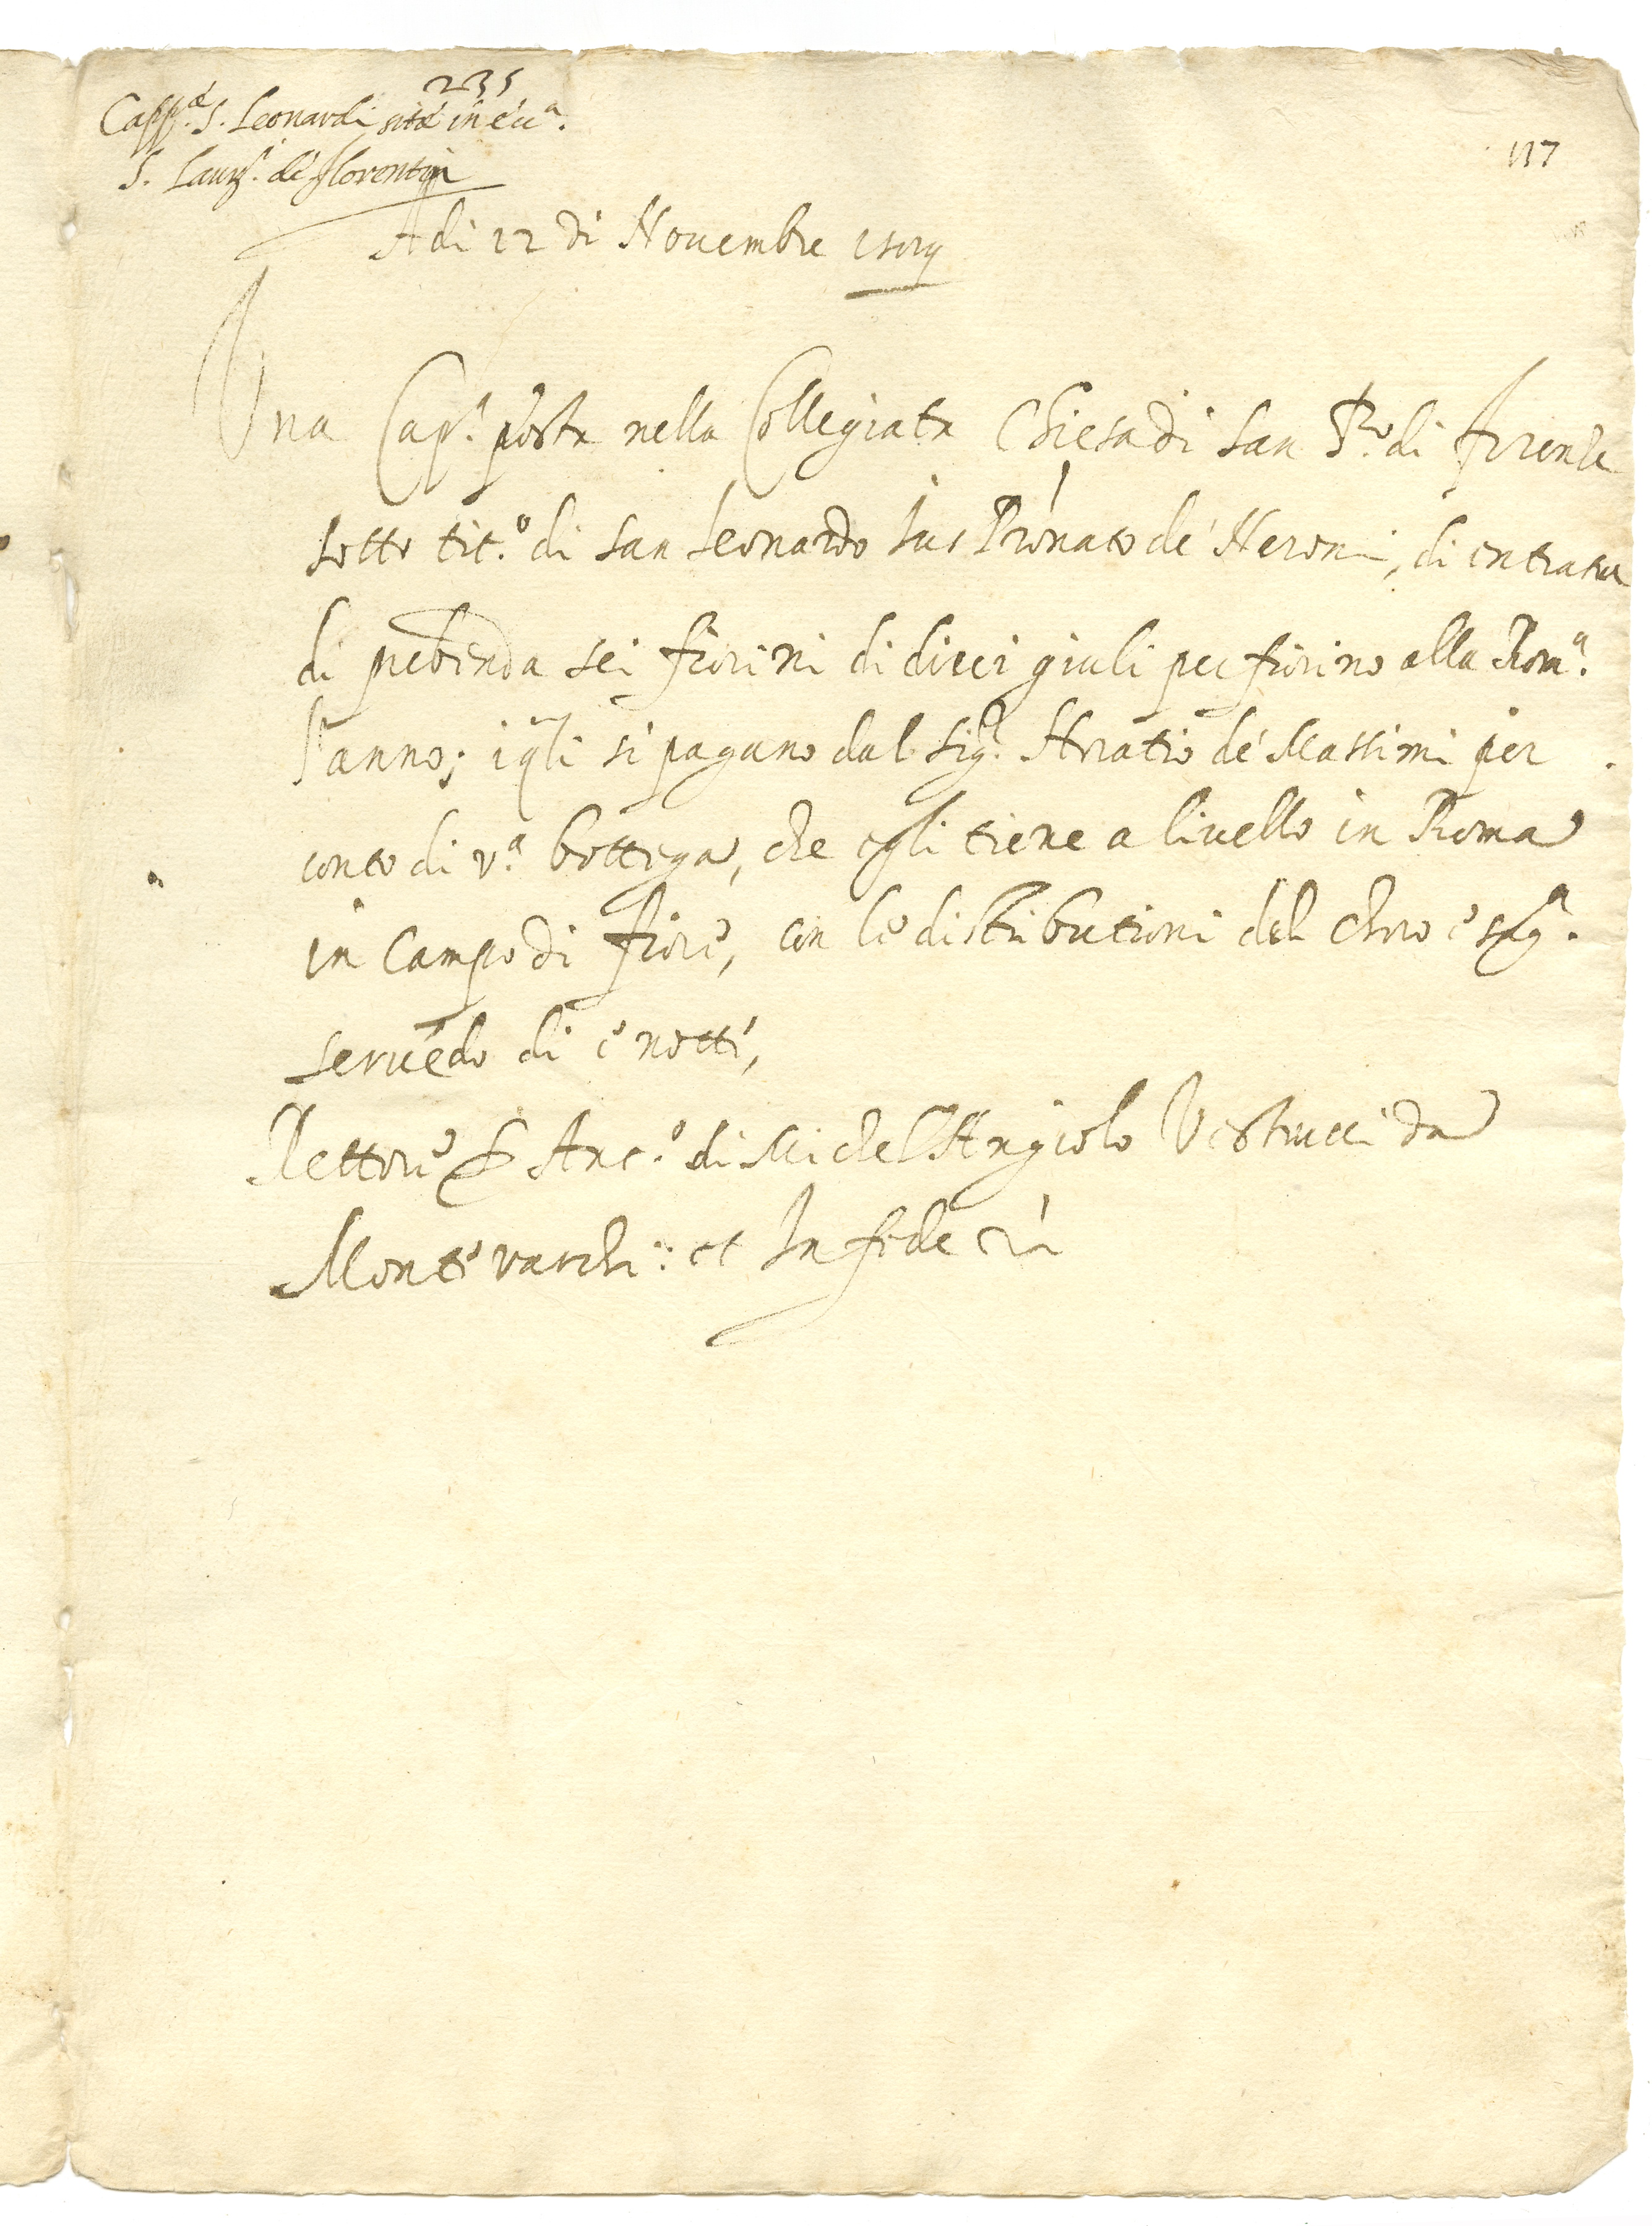 235
Capp.ᵃ S. Leonardi sita in ecc.ᵃ
S. Laurᵗ. de Florentia
117
A di 12 di Novembre
Una Cap.ᵃ posta nella Collegiata Chiesa di San di Firenze
sotto tit.º di San Leonardo Jus Prónato de' Neroni, di entrata
di prebenda sei fiorini di dieci giuli per fiorino alla Rom.ᵃ
l'anno; i qli si pagano dal Sig.ʳ Horatio de' Massimi per
conto di v.ᵃ bottega, che egli tiene a livello in Roma
in Campo di fiore, con le distributioni del choro e
servēdo di e notte,
Rettore Ant.º di Michel'Angiolo da
Monte varchi: et In fede